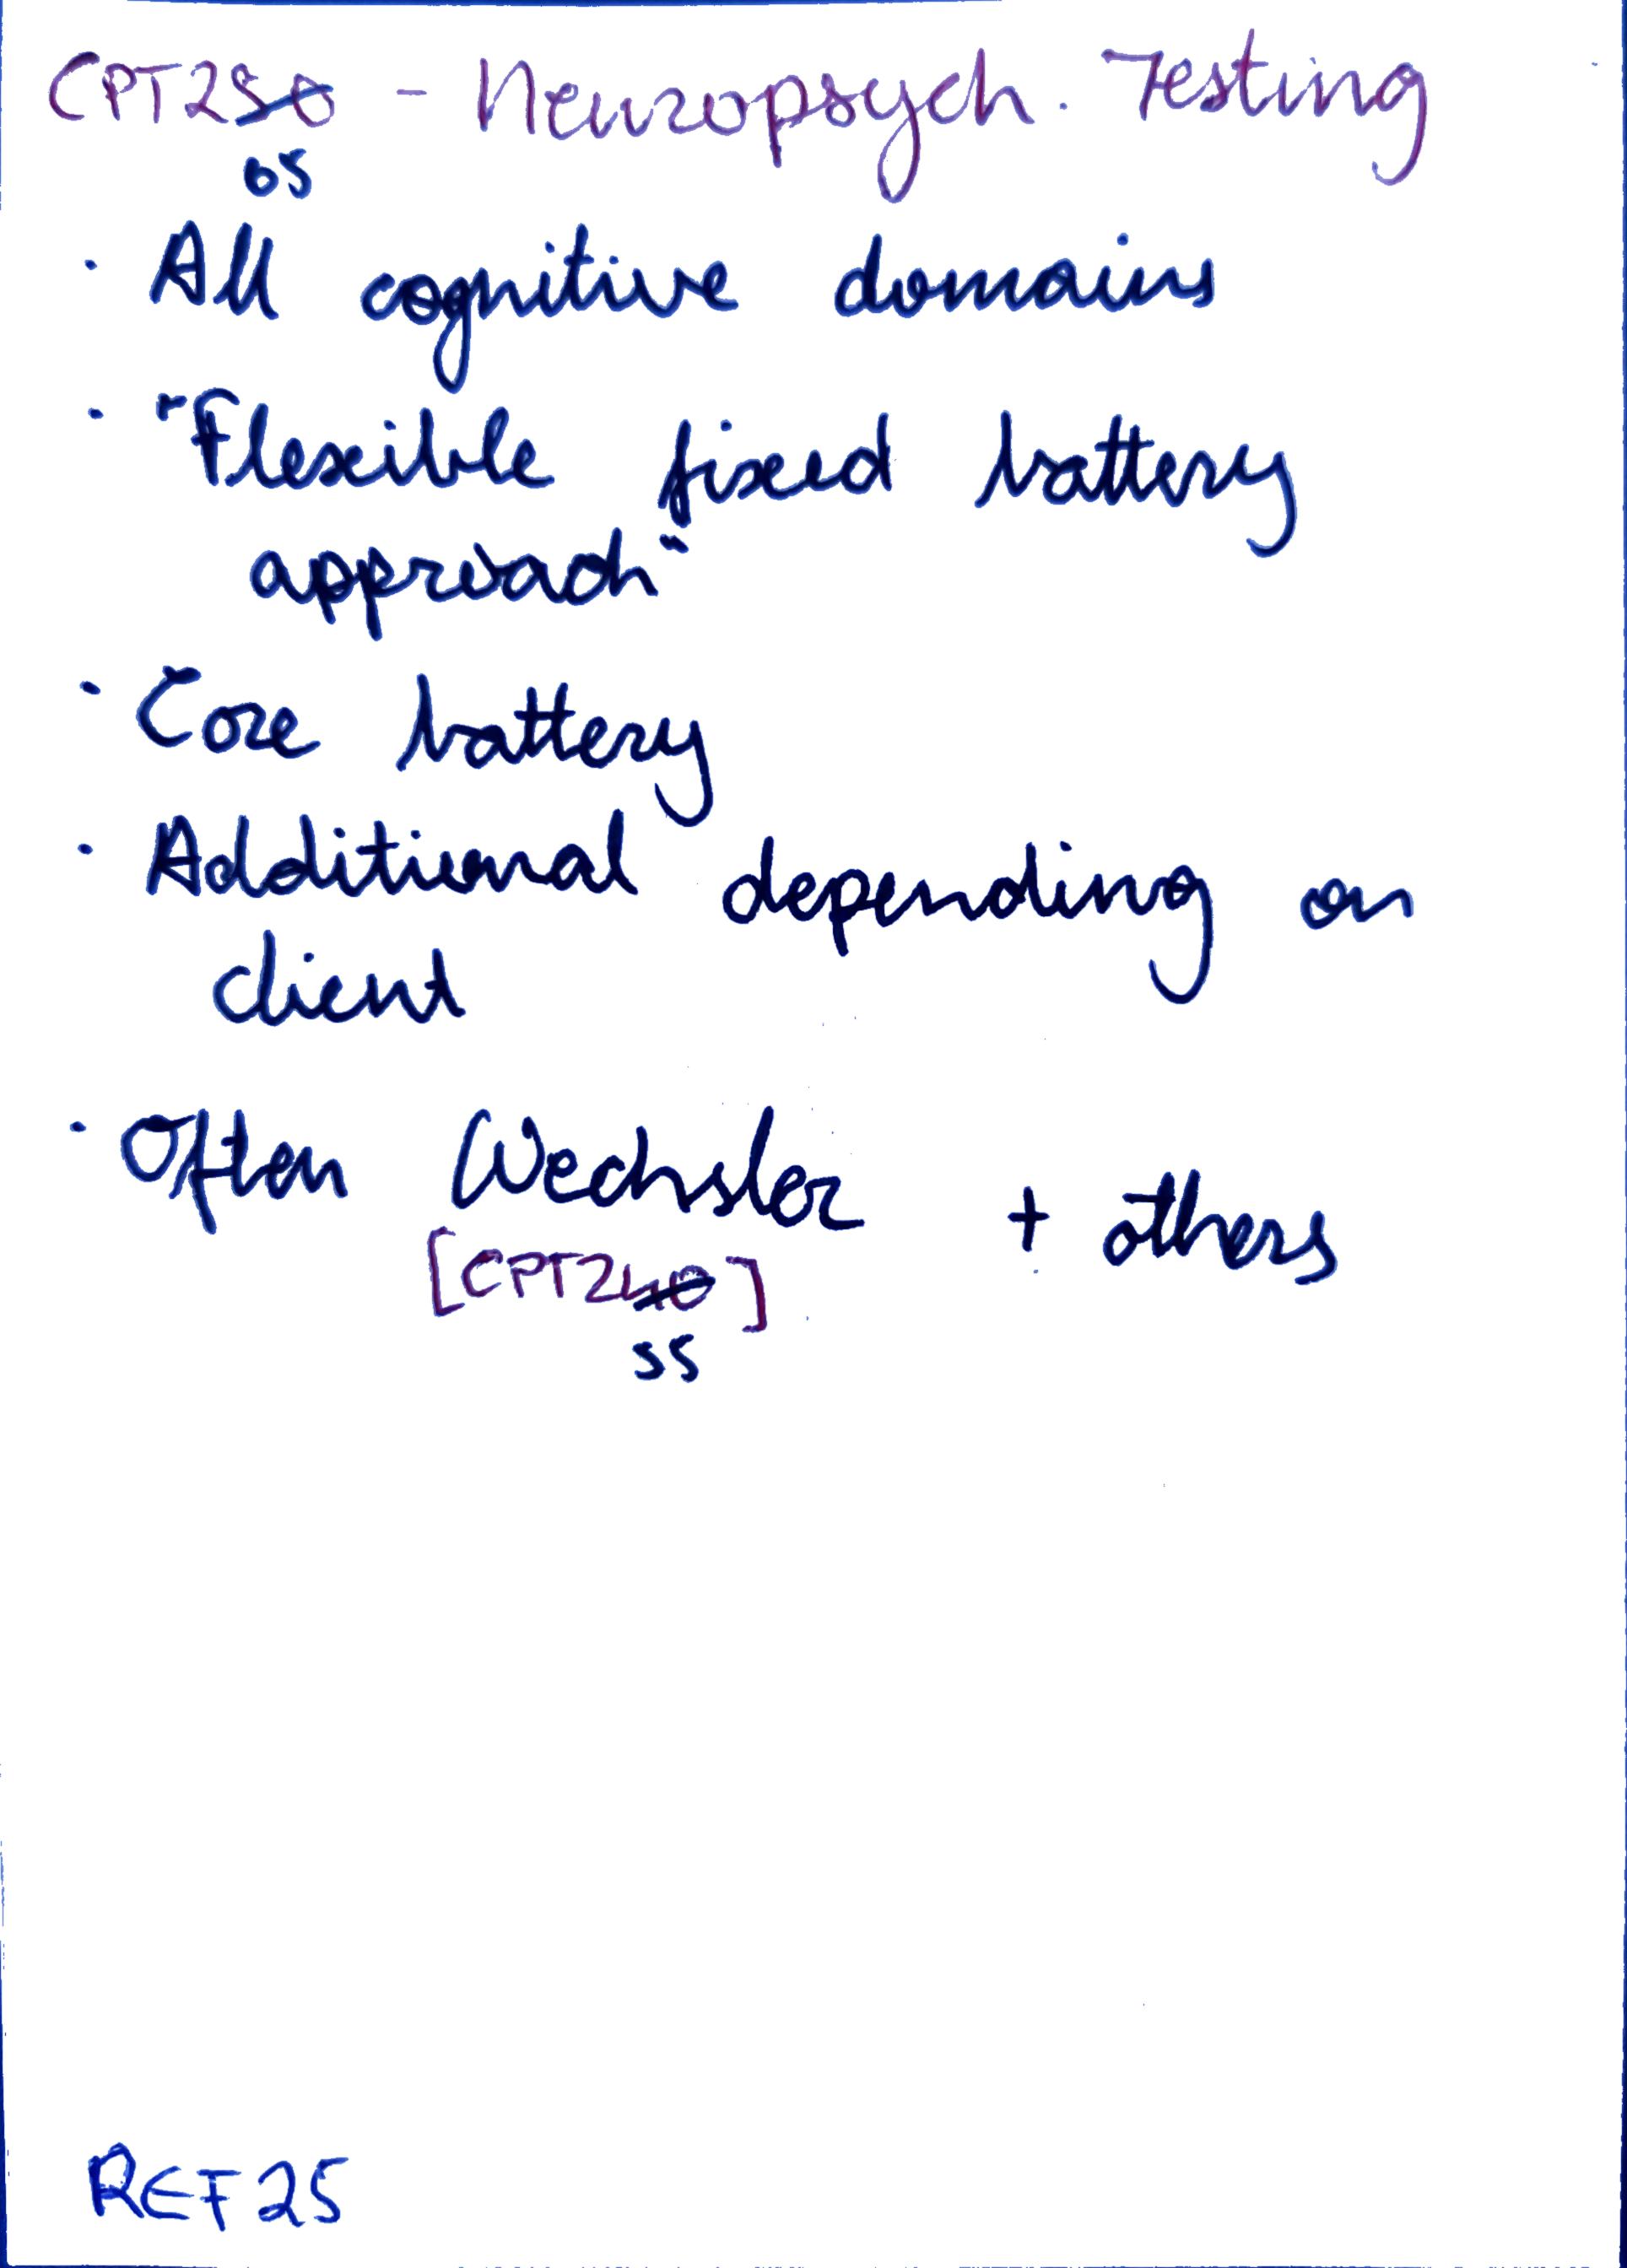 CPT250 - Neuropsych. Testing
05
· All cognitive domains
· "Flexible fixed battery
approach"
· Core battery
· Additional depending on
client
· Often Wechsler + others
[CPT240]
55
REF25